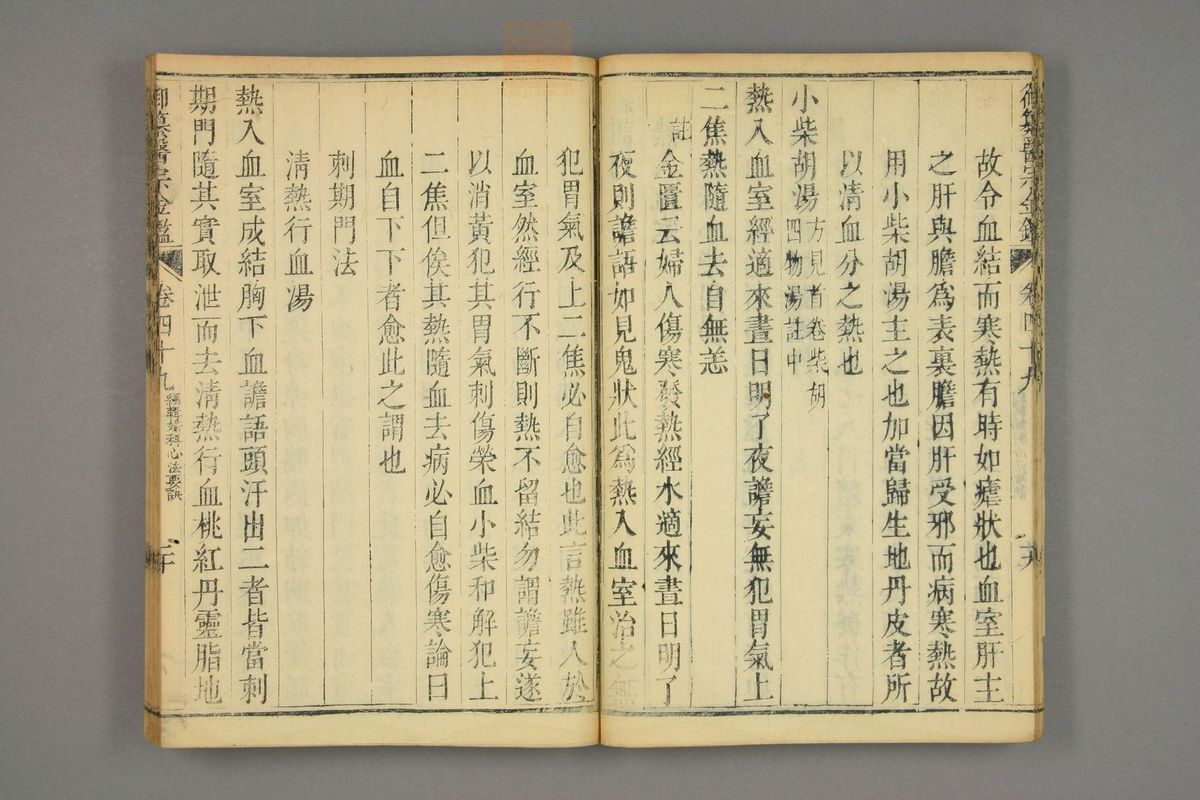 故令血結而寒熱有時如瘧狀也血室肝主
之肝與膽為表裏膽因肝受邪而病寒熱故
用小柴胡湯主之也加當歸生地丹皮者所
以清血分之熱也
小柴胡湯
方見首卷柴胡
四物湯註中
熱入血室經適來晝日明了夜譫妄無犯胃氣上
二焦熱隨血去自無恙
註
金匱云婦人傷寒發熱經水適來晝日明了
夜則譫語如見鬼狀此為熱入血室治之無
犯胃氣及上二焦必自愈也此言熱雖入於
血室然經行不斷則熱不留結勿謂譫妄遂
以消黃犯其胃氣刺傷榮血小柴和解犯上
二焦但俟其熱隨血去病必自愈傷寒論曰
血自下下者愈此之謂也
刺期門法
清熱行血湯
熱入血室成結胸下血譫語頭汗出二者皆當刺
期門隨其實取泄而去清熱行血桃紅丹靈脂地
御纂醫宗金鑑
卷四十九
編輯婦科心法要訣